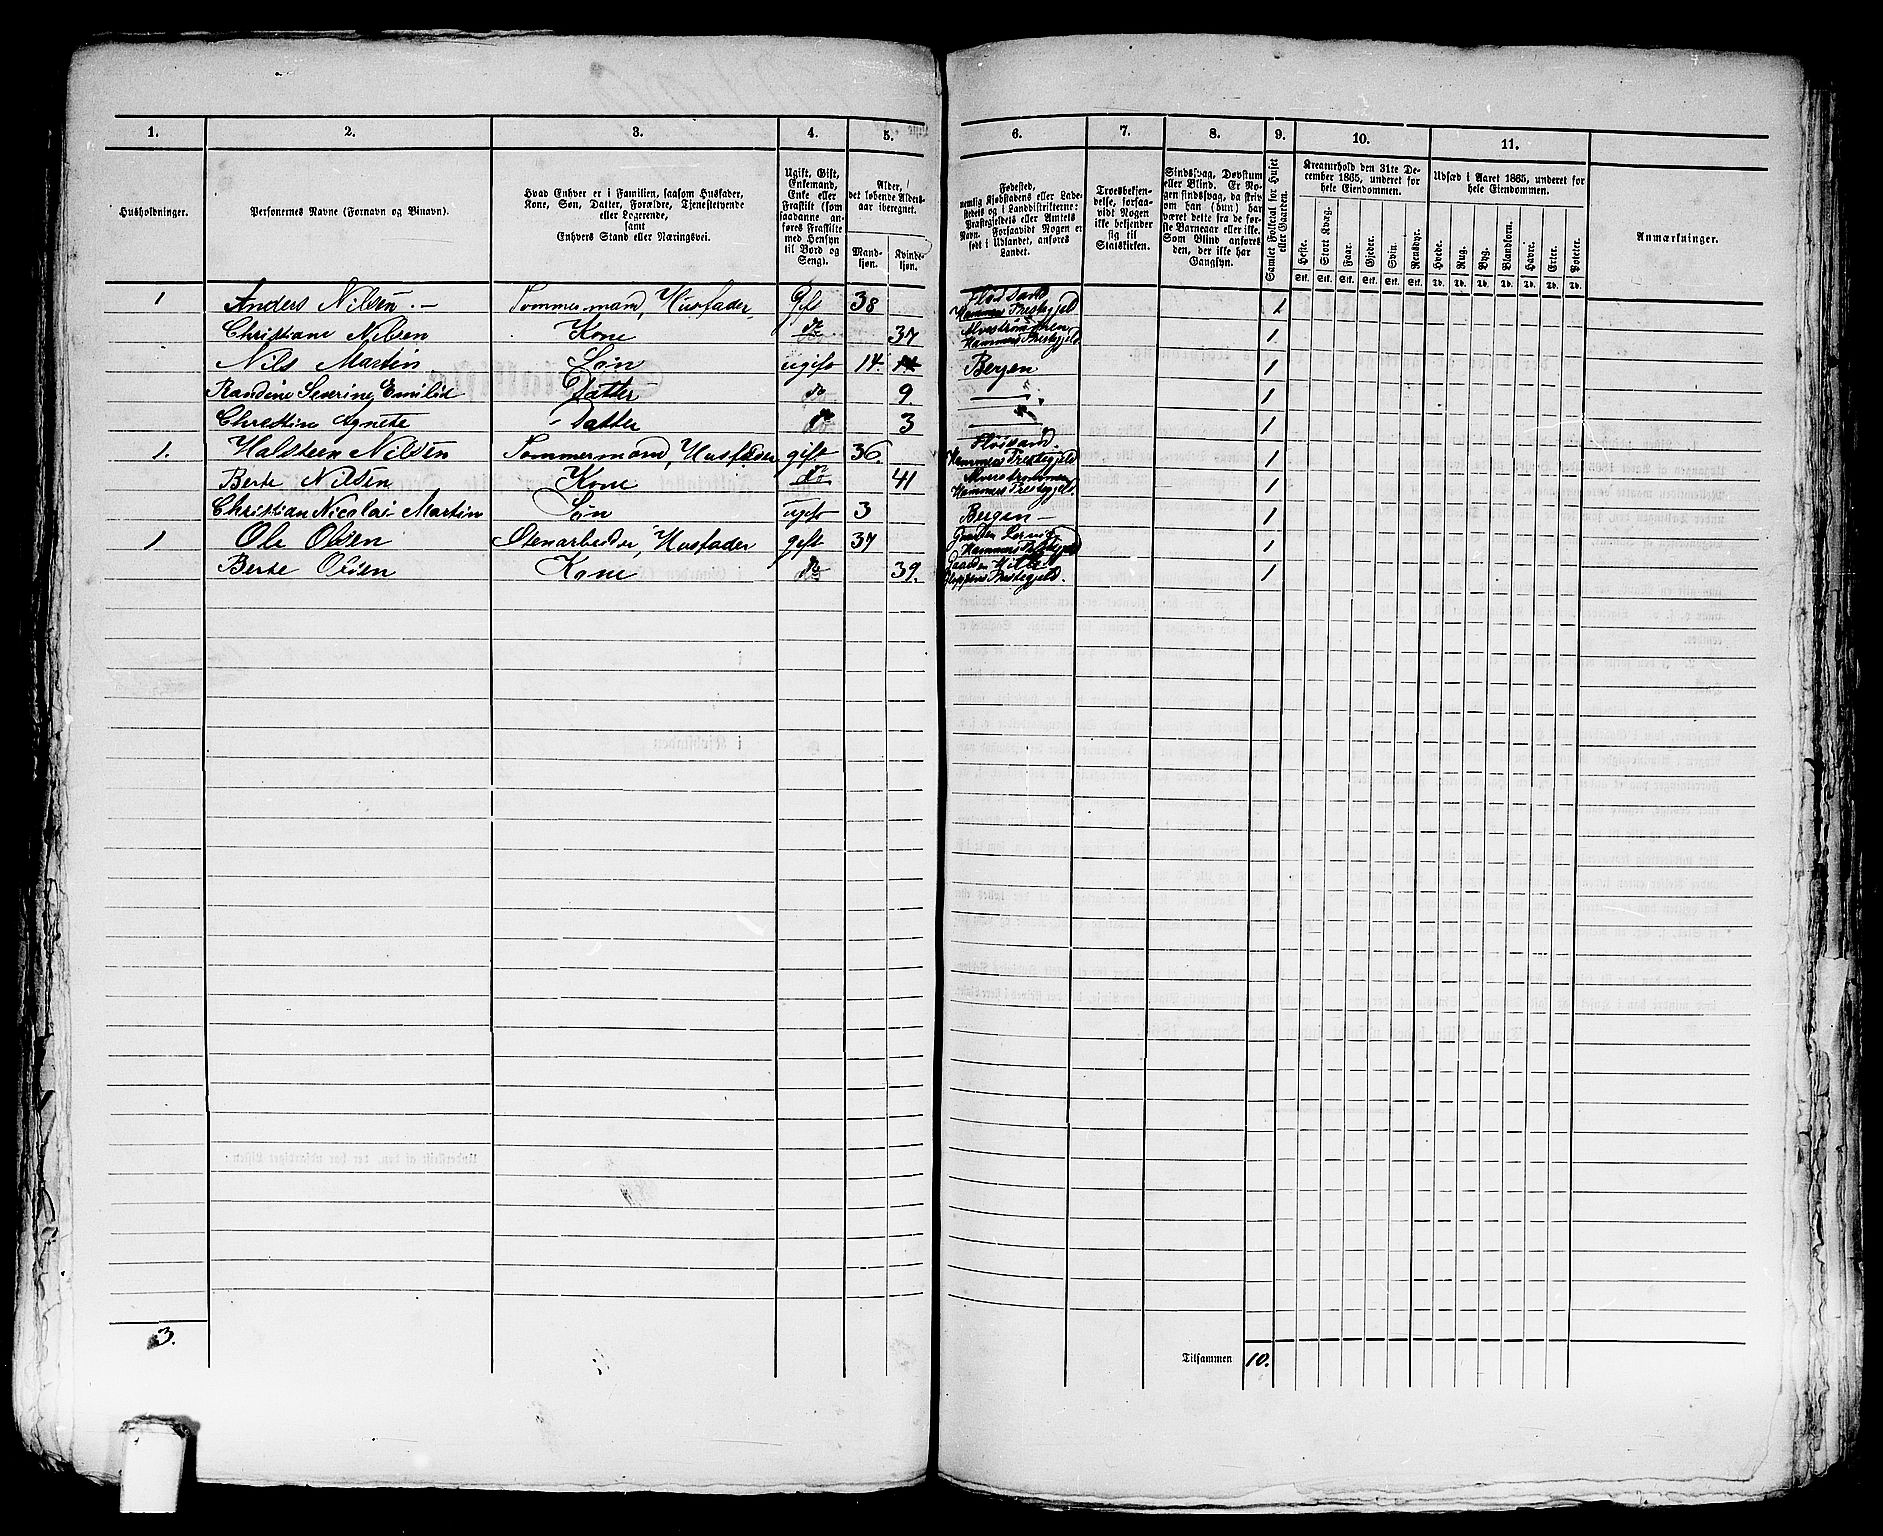 1. 2. 3. 4. 5. 6. 7. 8. 9. 10. 11.
Husholdninger.
Personernes Navne (Fornavn og Binavn).
Hvad Enhver er i Familien, saasom Husfader,
Kone, Søn, Datter, Forældre, Tjenestetyende
eller Logerende,
samt
Enhvers Stand eller Næringsvei.
Ugift, Gift,
Enkemand,
Enke eller
Fraskilt (som
saadanne an-
føres Fraskilte
med Hensyn
til Bord og
Seng).
Alder,
det løbende Alders-
aar iberegnet.
Mand-
kjøn.
Kvinde-
kjøn.
Fødested,
nemlig Kjøbstadens eller Lade-
stedets og i Landdistrikterne:
Præstegjeldets eller Amtets
Navn. Forsaavidt Nogen er
født i Udlandet, anføres
Landet.
Troesbekjen-
delse, forsaa-
vidt Nogen
ikke bekjender
sig til
Statskirken.
Sindssvag, Døvstum
eller Blind. Er No-
gen sindssvag, da skriv
om han (hun) har
været dette fra de før-
ste Barneaar eller ikke.
Som Blind anføres
den, der ikke har
Gangsyn.
Samlet Folketal for Huset
eller Gaarden.
Kreaturhold den 31te De-
cember 1865, underet for
hele Eiendommen.
Heste. Stort Kvæg. Faar. Gjeder. Svin. Rensdyr.
Stk. Stk. Stk. Stk. Stk. Stk.
Udsæd i Aaret 1865, underet for
hele Eiendommen.
Hvede. Rug. Byg. Blandkorn. Havre. Erter. Poteter.
Td. Td. Td. Td. Td. Td. Td.
Anmærkninger.
1 Anders Nilsen .- Tømmermand, Husfader, Gift 38 Flodsand Hammer Prestegjeld 1
Christiane Nilsen Kone do 37 Alverstrømmen Hammers Prestegjeld 1
Nils Martin Søn ugift 14. Bergen 1
Randine Severine Emilie Datter do 9. — " — 1
Christine Agnete Datter do 3 — " — 1
1. Halsteen Nilsen Tømmermand, Husfader gift 36. Flodsand. Hammers Prestegjeld 1
Berte Nilsen Kone do 41 Alverstrømmen Hammers Prestegjeld. 1
Christian Nicolai Martin Søn ugift 3 Bergen — 1
1 Ole Olsen Stenarbeider, Husfader gift 37 Hammers Prestegjeld 1
Berte Olsen Kone do 39. Gloppens Prestegjeld. 1
3.
Tilsammen 10.